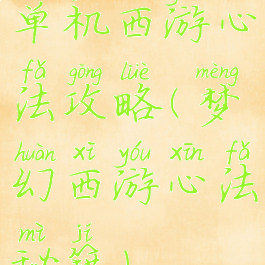 单机西游心
fǎ gōng lüè mèng
法攻略(梦
huàn xī yóu xīn fǎ
幻西游心法
mì jí
秘籍)